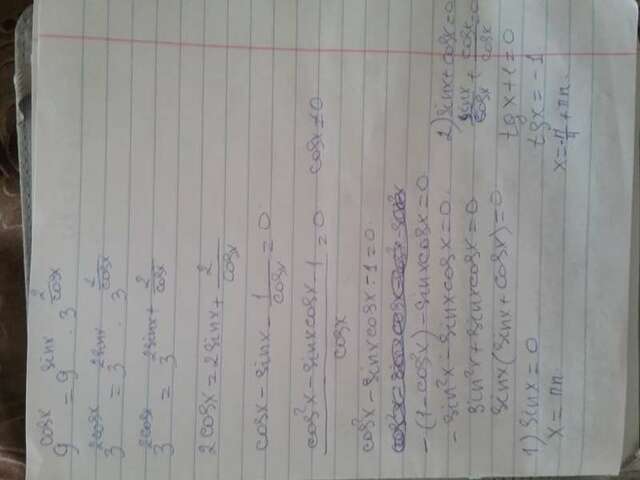 9^cosx = 9^sinx · 3^(2/cosx)
3^2cosx = 3^2sinx · 3^(2/cosx)
3^2cosx = 3^(2sinx + 2/cosx)
2cosx = 2sinx + 2/cosx
cosx - sinx - 1/cosx = 0
(cos²x - sinxcosx - 1)/cosx = 0 cosx ≠ 0
cos²x - sinxcosx - 1 = 0
-(1-cos²x) - sinxcosx = 0
-sin²x - sinxcosx = 0
sin²x + sinxcosx = 0
sinx(sinx + cosx) = 0
1) sinx = 0
x = πn
2) sinx + cosx = 0
sinx/cosx + cosx/cosx = 0
tgx + 1 = 0
tgx = -1
x = -π/4 + πn.